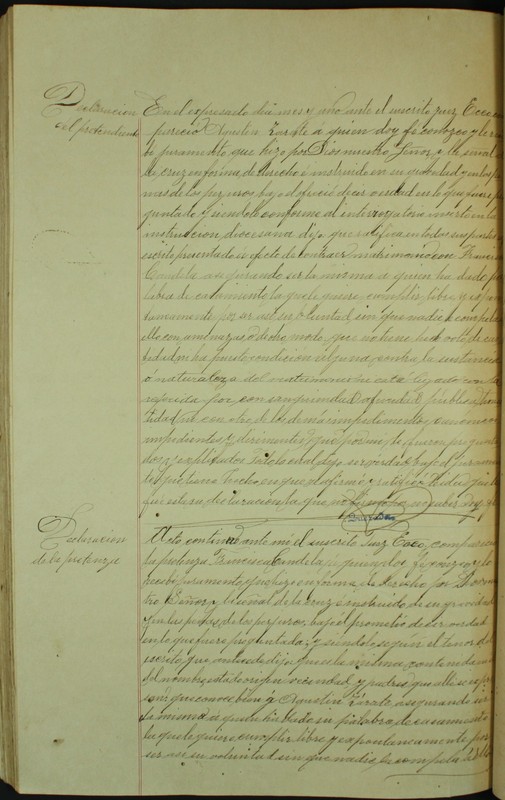 Declaracion
el pretendiente
En el expresado dia mes y año ante el suscrito Juez Ecco com
pareció Agustin Zarate a quien doy fé conozco y le reci
bi juramento, que hizo por Dios nuestro Señor, e la señal
de cruz en forma de derecho e instruido en su gravedad y en las pe
nas de los perjuros, bajo el ofreció decir verdad en lo que fuere pre
guntado y siendole conforme al interrogatorio inserto en la
instruccion diocesana dijo: que ratifica en todas sus partes el
escrito presentado al efecto de contraer matrimonio con Francisca
Candela asegurando ser la misma a quien ha dado pa
labra de casamiento la que le quiere cumplir libre y espon
taneamente por ser asi su voluntad, sin que nadie le compela
a ello con amenazas ó de otro modo, que no tiene hecho voto de cas
tidad ni ha puesto condicion alguna, contra la sustancia
ó naturaleza del matrimonio ni está ligado con la
referida por consanguinidad afinidad
ni con otro de los demás impedimentos canonicos
impedientes y dirimentes que por mi le fueron pregunta
dos y esplicados. Todo lo cual dijo ser verdad bajo el juramen
to que tiene hecho en que se afirmó y ratificó leida que le
fue esta su declaracion, la que no firmó por no saber. Doy fé
Declaracion
de la pretensa
Acto continuo ante mi el suscrito Juez Ecco, compareció
la pretensa Francisca Candela a quien doy fé conozco y le
recibi juramento, que hizo en forma de derecho por Dios nues
tro Señor y la señal de la cruz é instruida de su gravedad
y en las penas de los perjuros, bajo él prometió decir verdad
en lo que fuere preguntada; y siendolo según el tenor del
escrito que antecede dijo: que es la misma contenida en
del nombre, estado origen vecindad, y padres que alli se espre
san: que conoce bien á Agustin Zarate, asegurando ser
la misma a quien ha dado su palabra de casamiento
la que le quiere cumplir libre y espontaneamente por
ser asi su voluntad sin que nadie la compela á ello